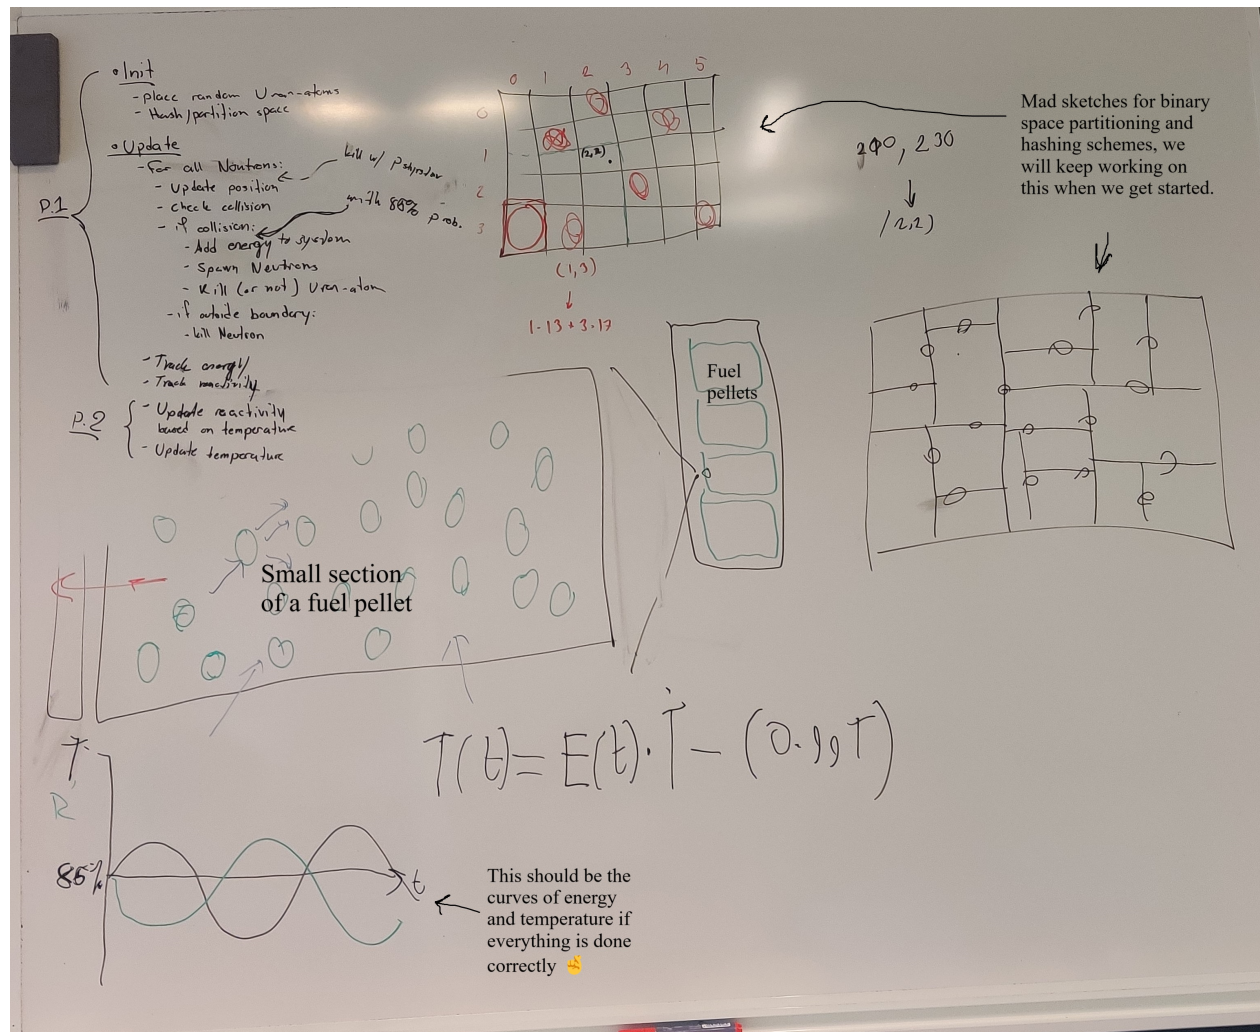 P.1
• Init
- Place random Uran-atoms
- Hash/partition space
• Update
- For all Neutrons:
- Update position
kill w/
- Check collision
- if collision:
with 85% prob.
- Add energy to system
- Spawn Neutrons
- Kill (or not) Uran-atom
- if outside boundary:
- kill Neutron
- Track energy
- Track reactivity
P.2
- Update reactivity
based on temperature
- Update temperature
0 1 2 3 4 5
0
1
2
3
(2,2)
(1,3)
1·13 + 3·17
230
(2,2)
Mad sketches for binary
space partitioning and
hashing schemes, we
will keep working on
this when we get started.
Fuel
pellets
Small section
of a fuel pellet
T(t) = E(t) · T - (0.99T)
T,
R
85%
t
This should be the
curves of energy
and temperature if
everything is done
correctly 🤞